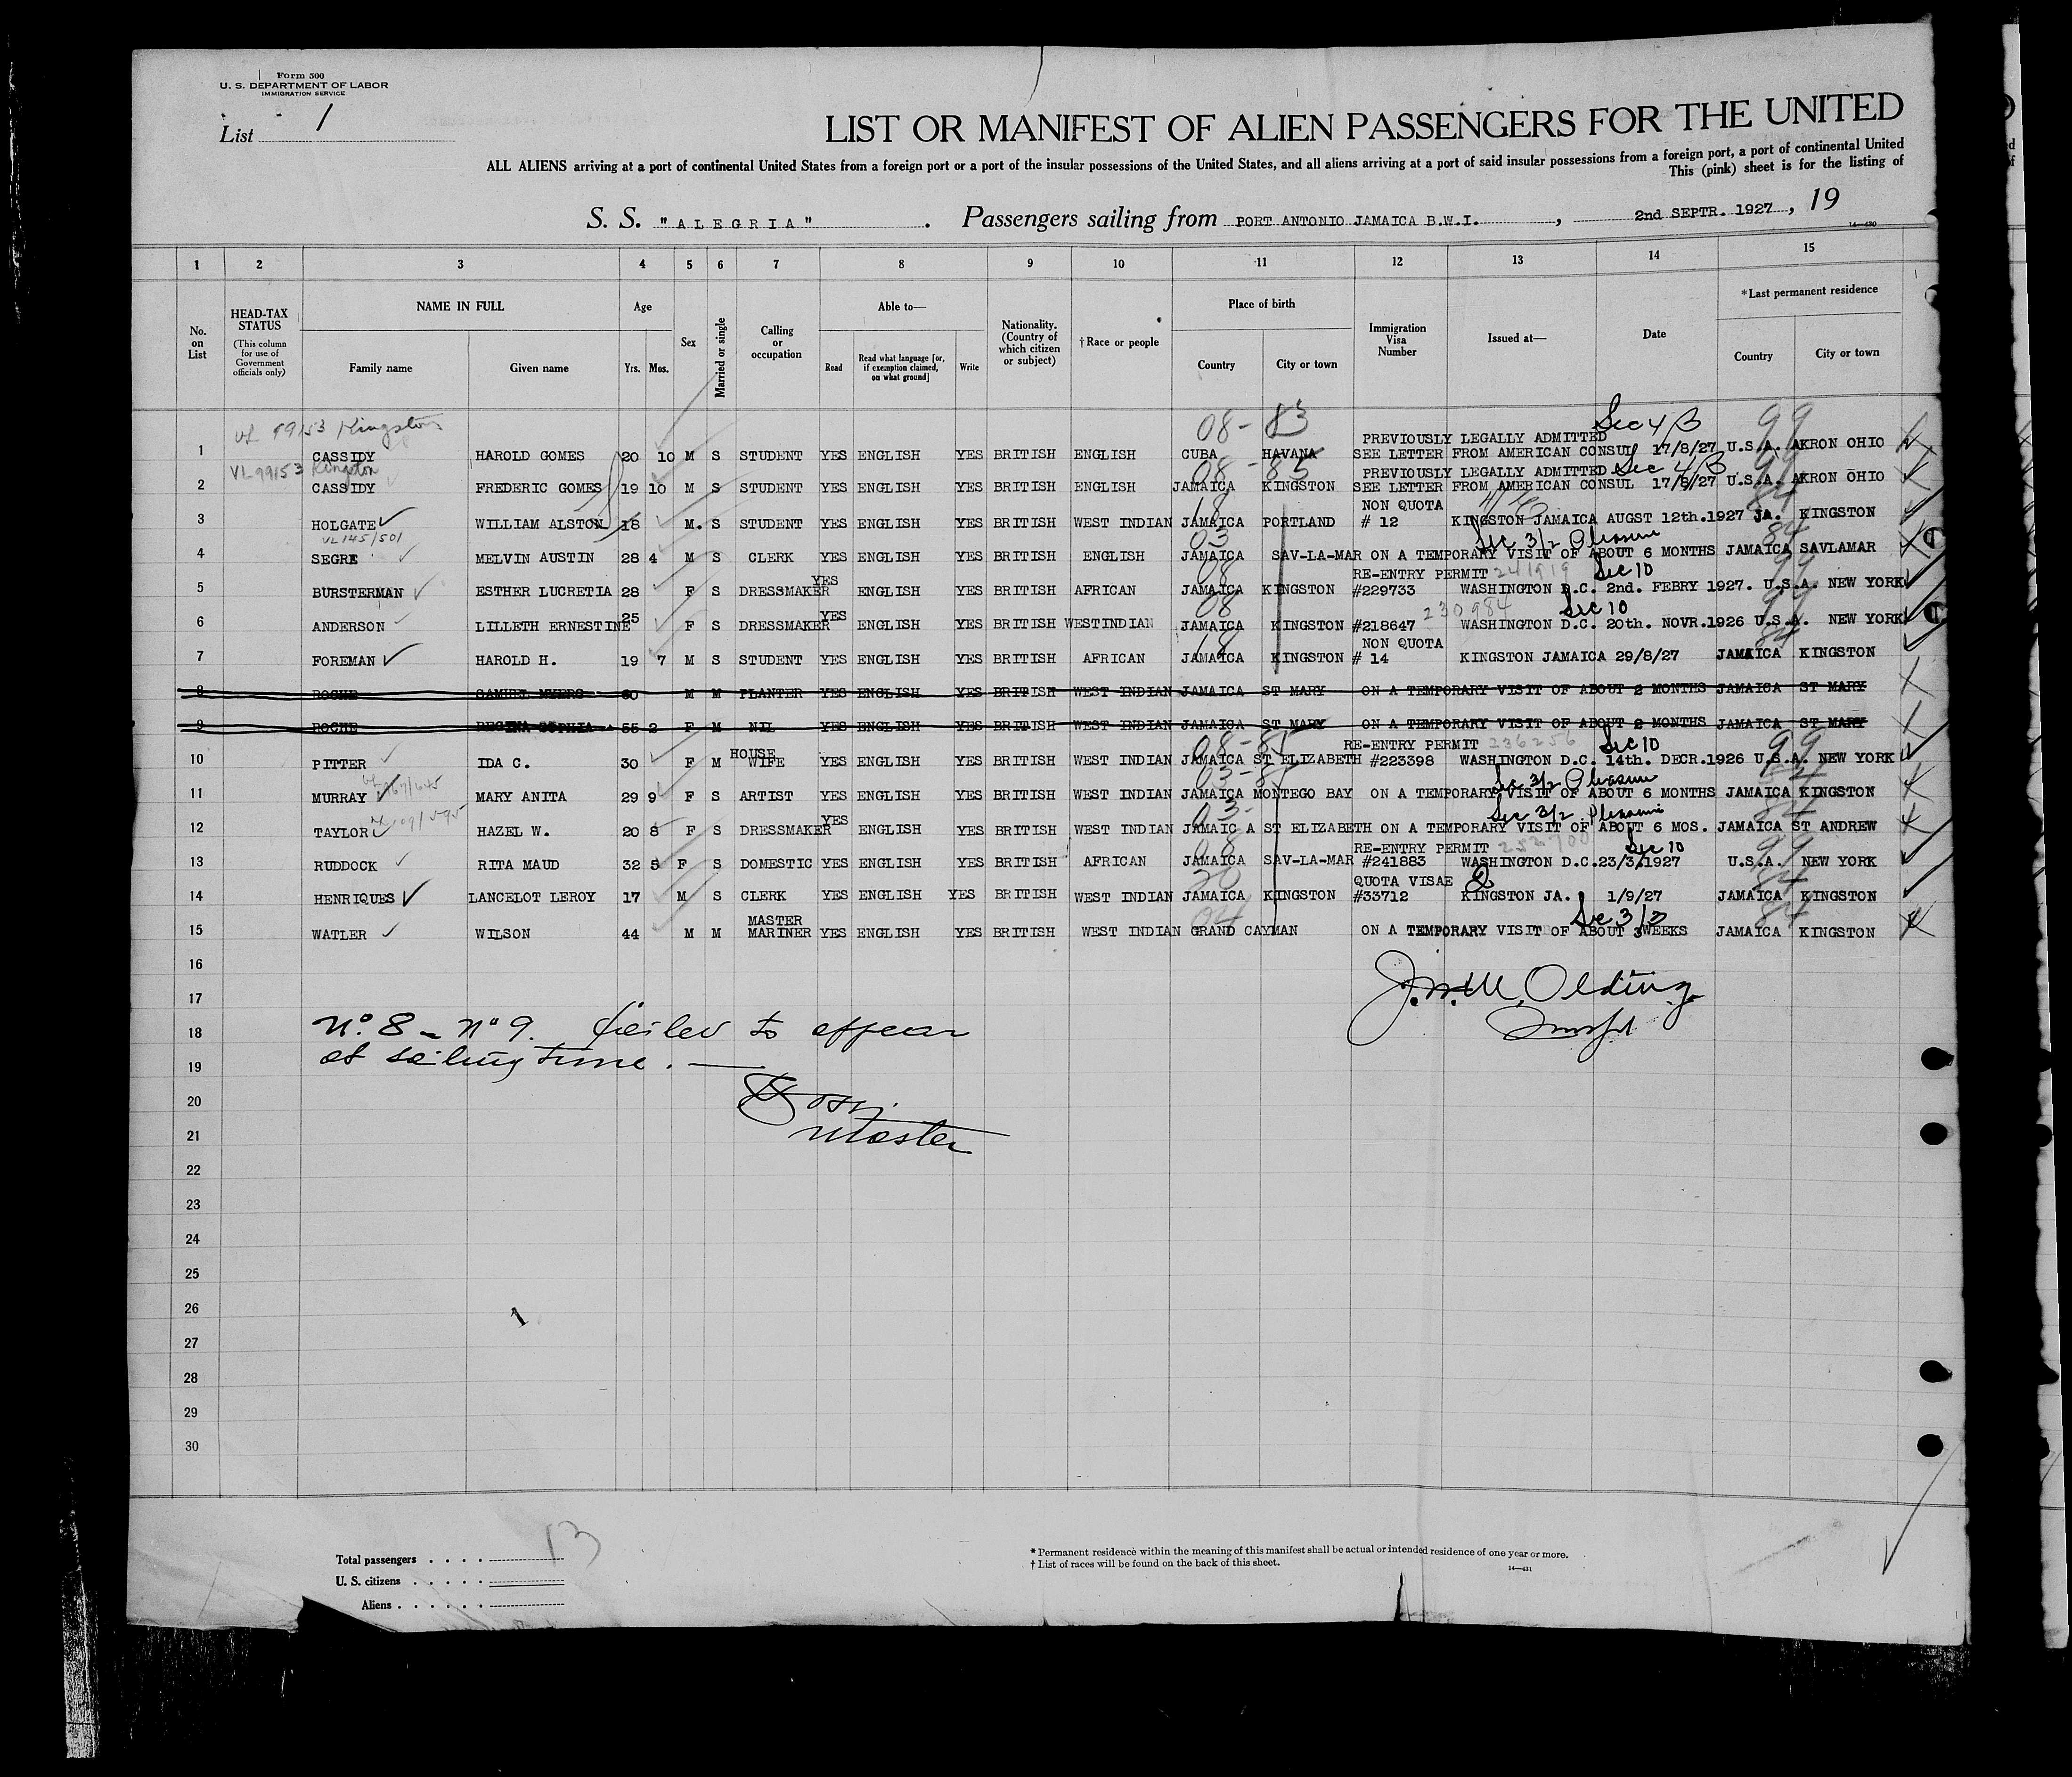 Form 500
U. S. DEPARTMENT OF LABOR
IMMIGRATION SERVICE
List 1
LIST OR MANIFEST OF ALIEN PASSENGERS FOR THE UNITED
ALL ALIENS arriving at a port of continental United States from a foreign port or a port of the insular possessions of the United States, and all aliens arriving at a port of said insular possessions from a foreign port, a port of continental United
This (pink) sheet is for the listing of
S. S. "ALEGRIA". Passengers sailing from PORT ANTONIO JAMAICA B.W.I., 2nd SEPTR. 1927, 19
14—430
1 2 3 4 5 6 7 8 9 10 11 12 13 14 15
No. on List
HEAD-TAX STATUS (This column for use of Government officials only)
NAME IN FULL Family name Given name
Age Yrs. Mos.
Sex
Married or single
Calling or occupation
Able to— Read Read what language [or, if exemption claimed, on what ground] Write
Nationality. (Country of which citizen or subject)
†Race or people
Place of birth Country City or town
Immigration Visa Number
Issued at—
Date
*Last permanent residence Country City or town
VL 99153 Kingston 08-83 Sec 4 B 99
PREVIOUSLY LEGALLY ADMITTED
1 CASSIDY HAROLD GOMES 20 10 M S STUDENT YES ENGLISH YES BRITISH ENGLISH CUBA HAVANA SEE LETTER FROM AMERICAN CONSUL 17/8/27 U.S.A. AKRON OHIO
VL 99153 Kingston 08-85 PREVIOUSLY LEGALLY ADMITTED Sec 4/B 99
2 CASSIDY FREDERIC GOMES 19 10 M S STUDENT YES ENGLISH YES BRITISH ENGLISH JAMAICA KINGSTON SEE LETTER FROM AMERICAN CONSUL 17/8/27 U.S.A. AKRON OHIO
18 NON QUOTA 84
3 HOLGATE WILLIAM ALSTON 18 M. S STUDENT YES ENGLISH YES BRITISH WEST INDIAN JAMAICA PORTLAND # 12 KINGSTON JAMAICA AUGST 12th.1927 JA. KINGSTON
VL 145/501 03 Sec 3/2 Pleasure 84
4 SEGRE MELVIN AUSTIN 28 4 M S CLERK YES ENGLISH YES BRITISH ENGLISH JAMAICA SAV-LA-MAR ON A TEMPORARY VISIT OF ABOUT 6 MONTHS JAMAICA SAVLAMAR
YES 08 RE-ENTRY PERMIT 241919 Sec 10 99
5 BURSTERMAN ESTHER LUCRETIA 28 F S DRESSMAKER ENGLISH YES BRITISH AFRICAN JAMAICA KINGSTON #229733 WASHINGTON D.C. 2nd. FEBRY 1927. U.S.A. NEW YORK
25 YES 08 230984 Sec 10 99
6 ANDERSON LILLETH ERNESTINE F S DRESSMAKER ENGLISH YES BRITISH WESTINDIAN JAMAICA KINGSTON #218647 WASHINGTON D.C. 20th. NOVR.1926 U.S.A. NEW YORK
18 NON QUOTA 84
7 FOREMAN HAROLD H. 19 7 M S STUDENT YES ENGLISH YES BRITISH AFRICAN JAMAICA KINGSTON # 14 KINGSTON JAMAICA 29/8/27 JAMAICA KINGSTON
8 ROCHE SAMUEL MYERS 60 M M PLANTER YES ENGLISH YES BRITISH WEST INDIAN JAMAICA ST MARY ON A TEMPORARY VISIT OF ABOUT 2 MONTHS JAMAICA ST MARY
9 ROCHE REGINA SOPHIA 55 2 F M NIL YES ENGLISH YES BRITISH WEST INDIAN JAMAICA ST MARY ON A TEMPORARY VISIT OF ABOUT 2 MONTHS JAMAICA ST MARY
HOUSE 08-85 RE-ENTRY PERMIT 236256 Sec 10 99
10 PITTER IDA C. 30 F M WIFE YES ENGLISH YES BRITISH WEST INDIAN JAMAICA ST ELIZABETH #223398 WASHINGTON D.C. 14th. DECR.1926 U.S.A. NEW YORK
03-85 Sec 3/2 Pleasure 84
11 MURRAY MARY ANITA 29 9 F S ARTIST YES ENGLISH YES BRITISH WEST INDIAN JAMAICA MONTEGO BAY ON A TEMPORARY VISIT OF ABOUT 6 MONTHS JAMAICA KINGSTON
YES 03- Sec 3/2 Pleasure 84
12 TAYLOR HAZEL W. 20 8 F S DRESSMAKER ENGLISH YES BRITISH WEST INDIAN JAMAIC A ST ELIZABETH ON A TEMPORARY VISIT OF ABOUT 6 MOS. JAMAICA ST ANDREW
08 RE-ENTRY PERMIT 252700 Sec 10 99
13 RUDDOCK RITA MAUD 32 5 F S DOMESTIC YES ENGLISH YES BRITISH AFRICAN JAMAICA SAV-LA-MAR #241883 WASHINGTON D.C.23/3/1927 U.S.A. NEW YORK
20 QUOTA VISAE Q 84
14 HENRIQUES LANCELOT LEROY 17 M S CLERK YES ENGLISH YES BRITISH WEST INDIAN JAMAICA KINGSTON #33712 KINGSTON JA. 1/9/27 JAMAICA KINGSTON
MASTER 04 Sec 3/2 84
15 WATLER WILSON 44 M M MARINER YES ENGLISH YES BRITISH WEST INDIAN GRAND CAYMAN ON A TEMPORARY VISIT OF ABOUT 3 WEEKS JAMAICA KINGSTON
16
17
J.W.M. Olding
18 No. 8 - No 9. failed to appear
19 at sailing time.
20
21 Master
22
23
24
25
26 1
27
28
29
30
Total passengers 13
U. S. citizens
Aliens
* Permanent residence within the meaning of this manifest shall be actual or intended residence of one year or more.
† List of races will be found on the back of this sheet.
14—431